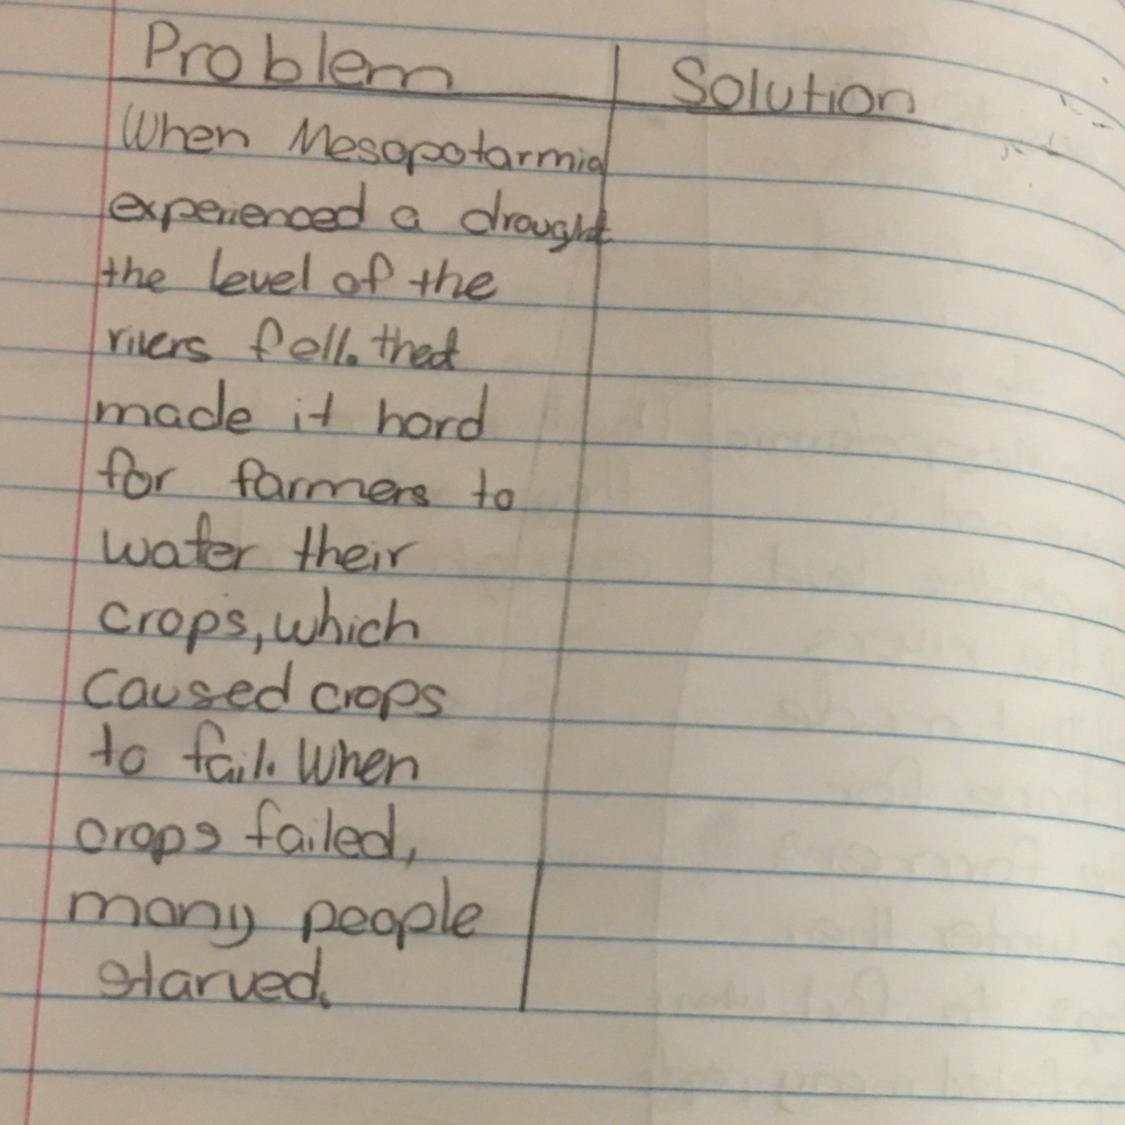 Problem
Solution
When Mesopotarmia
experienced a drought
the level of the
rivers fell. that
made it hard
for farmers to
water their
crops, which
caused crops
to fail. When
crops failed,
many people
starved.